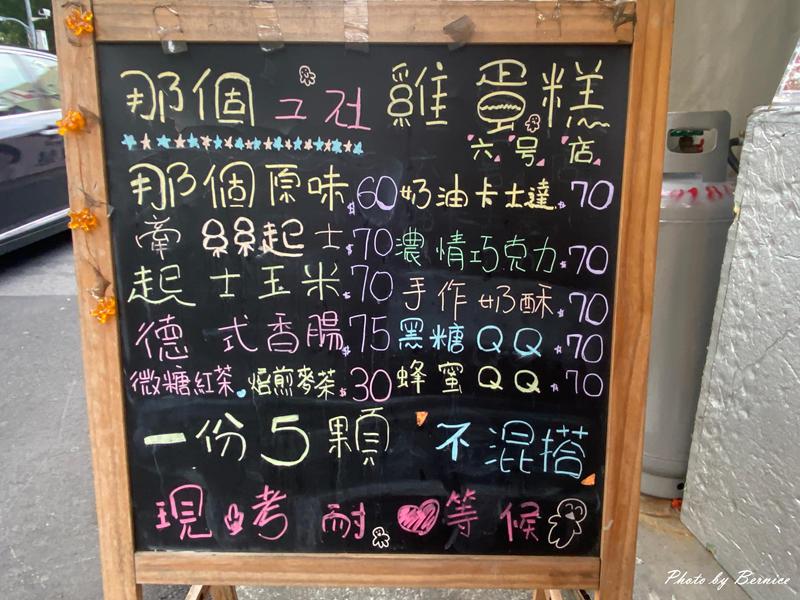 那個ユ社 雞蛋糕
六號店
那個原味 $60 奶油卡士達 $70
牽絲起士 $70 濃情巧克力 $70
起士玉米 $70 手作奶酥 $70
德式香腸 $75 黑糖QQ $70
微糖紅茶、焙煎麥茶 $30 蜂蜜QQ $70
一份5顆 不混搭
現考耐等候
Photo by Bernice